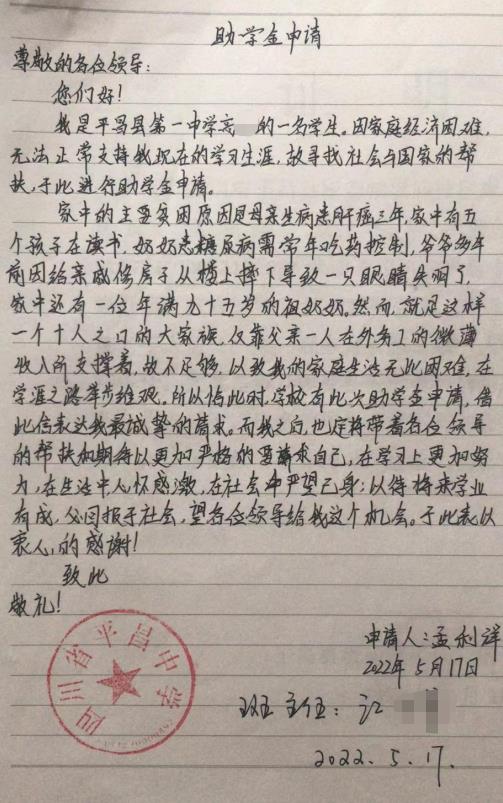 助学金申请
尊敬的各位领导:
您们好!
我是平昌县第一中学高 的一名学生。因家庭经济困难,
无法正常支持我现在的学习生涯,故寻找社会与国家的帮
扶,于此进行助学金申请。
家中的主要贫困原因是母亲生病患肝癌三年,家中有五
个孩子在读书,奶奶患糖尿病需常年吃药控制,爷爷多年
前因给亲戚修房子从楼上摔下导致一只眼睛失明了,
家中还有一位年满九十五岁的祖奶奶。然而,就是这样
一个十人之口的大家族,仅靠父亲一人在外务工的微薄
收入所支撑着,故不足够,以致我的家庭生活无比困难,在
学涯之路举步维艰。所以恰此时,学校有此次助学金申请,借
此信表达我最诚挚的请求。而我之后,也定将带着各位领导
的帮扶和期待以更加严格的要求自己,在学习上更加努
力,在生活中心怀感激,在社会中严望己身;以待将来学业
有成,必回报于社会,望各位领导给我这个机会。于此表以
衷心的感谢!
致此
敬礼!
申请人:孟利祥
2022年5月17日
班主任:江
2022.5.17.
四川省平昌中学